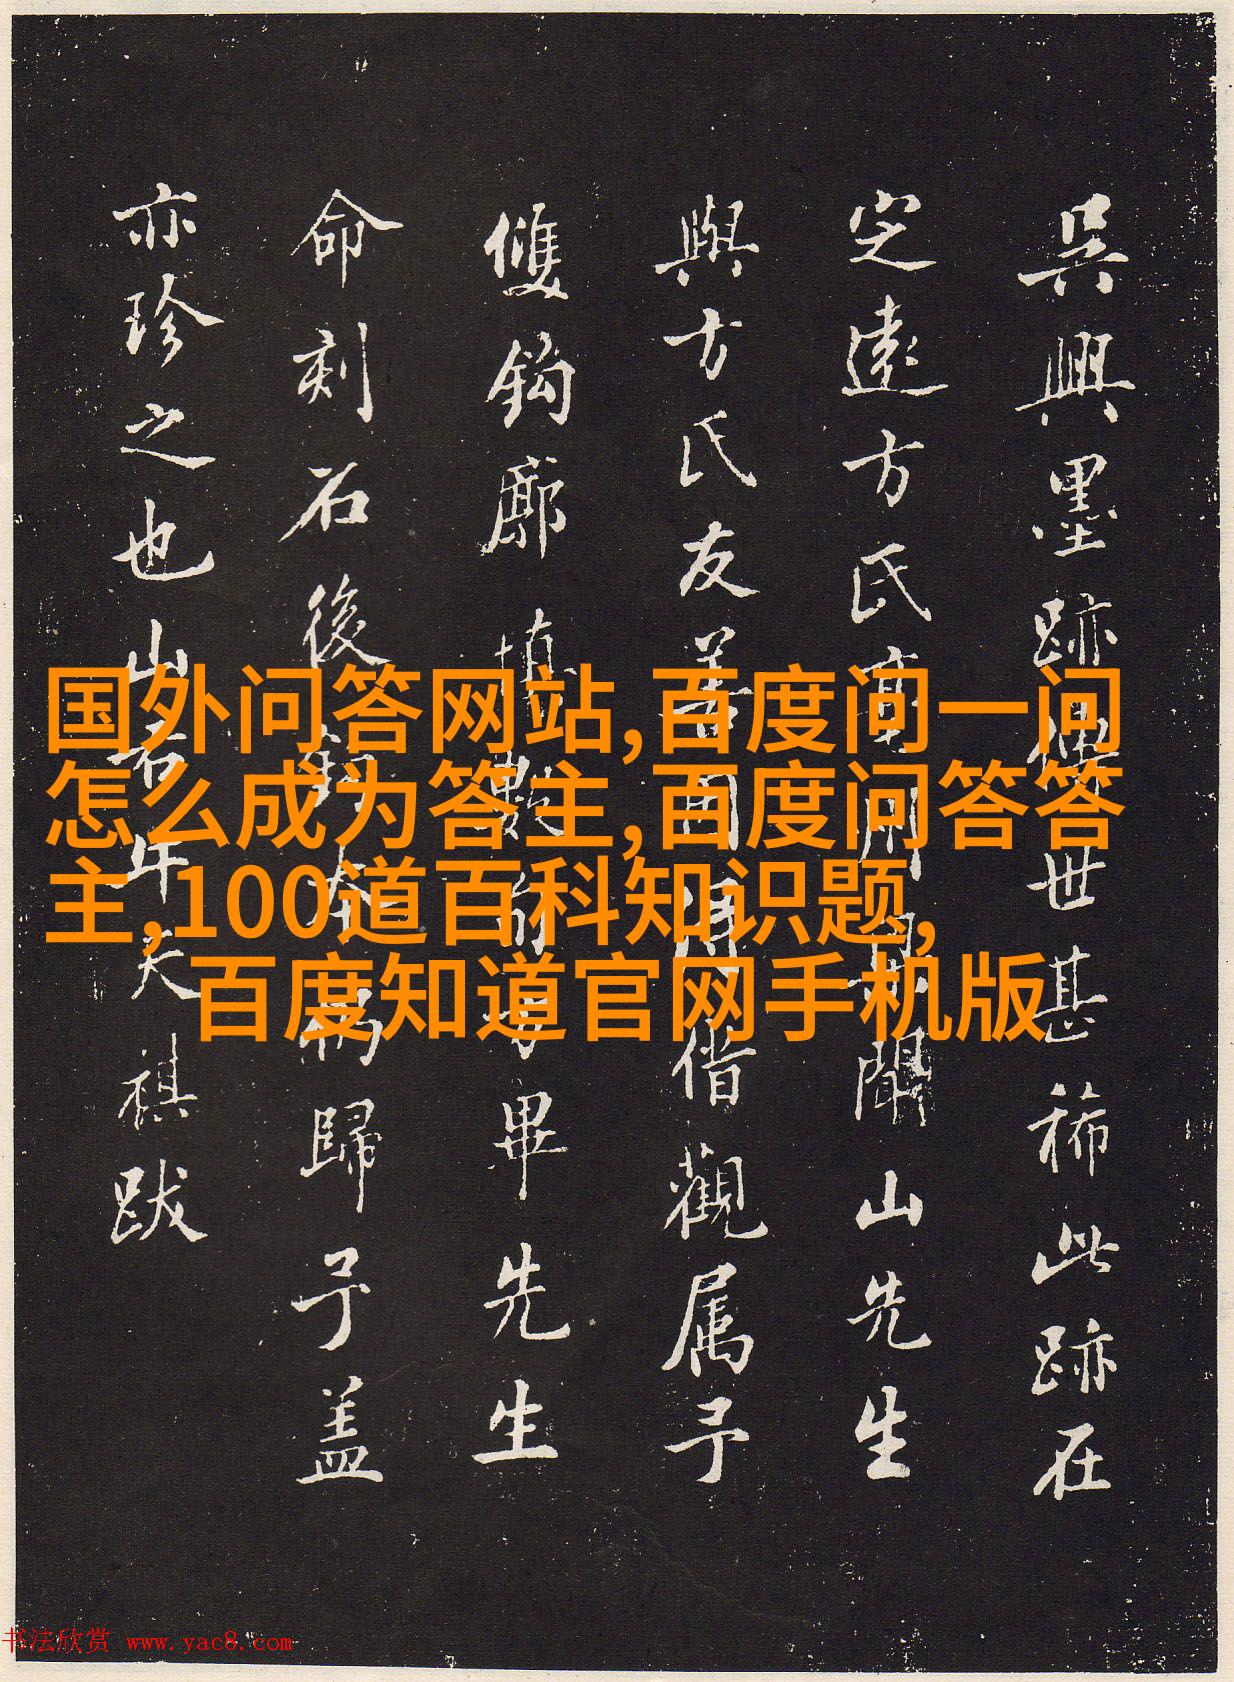 吳興墨跡傳世甚稀此跡在
定遠方氏家開聞山先生
與方氏友善因借觀属予
雙鈎廓填甫畢先生
命刻石後歸予盖
亦珍之也山天祺跋
国外问答网站,百度问一问
怎么成为答主,百度问答答
主,100道百科知识题,
百度知道官网手机版
书法欣赏 www.yac8.com